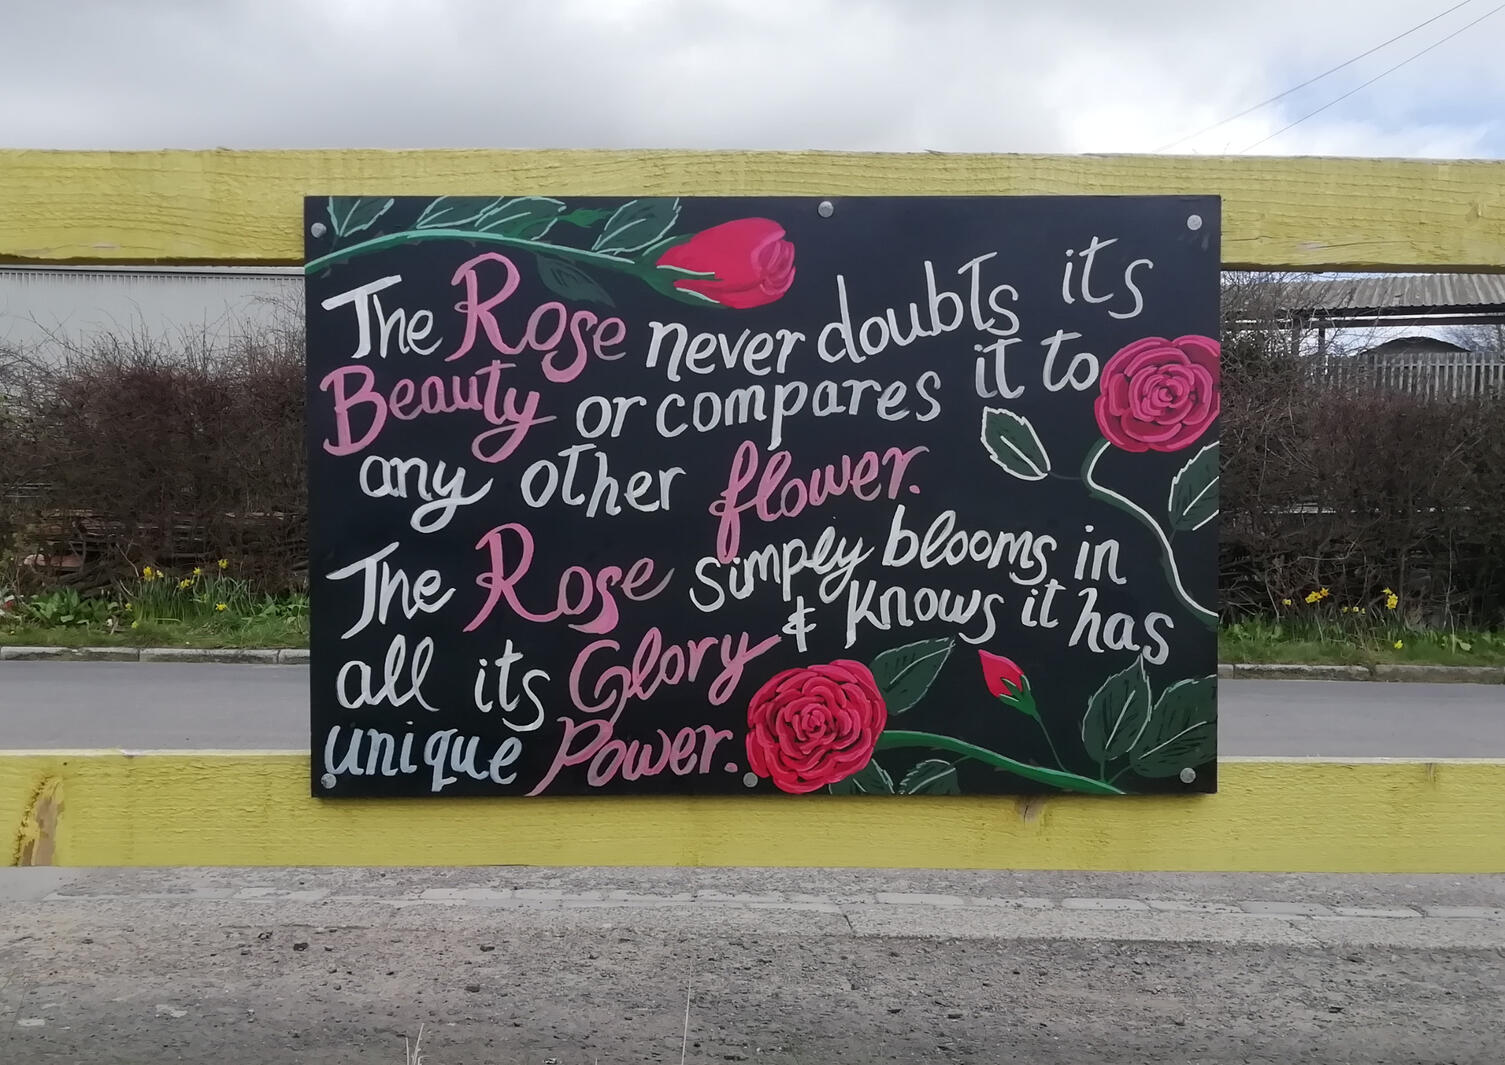 The Rose never doubts its
Beauty or compares it to
any other flower.
The Rose simply blooms in
& knows it has
all its Glory
unique Power.